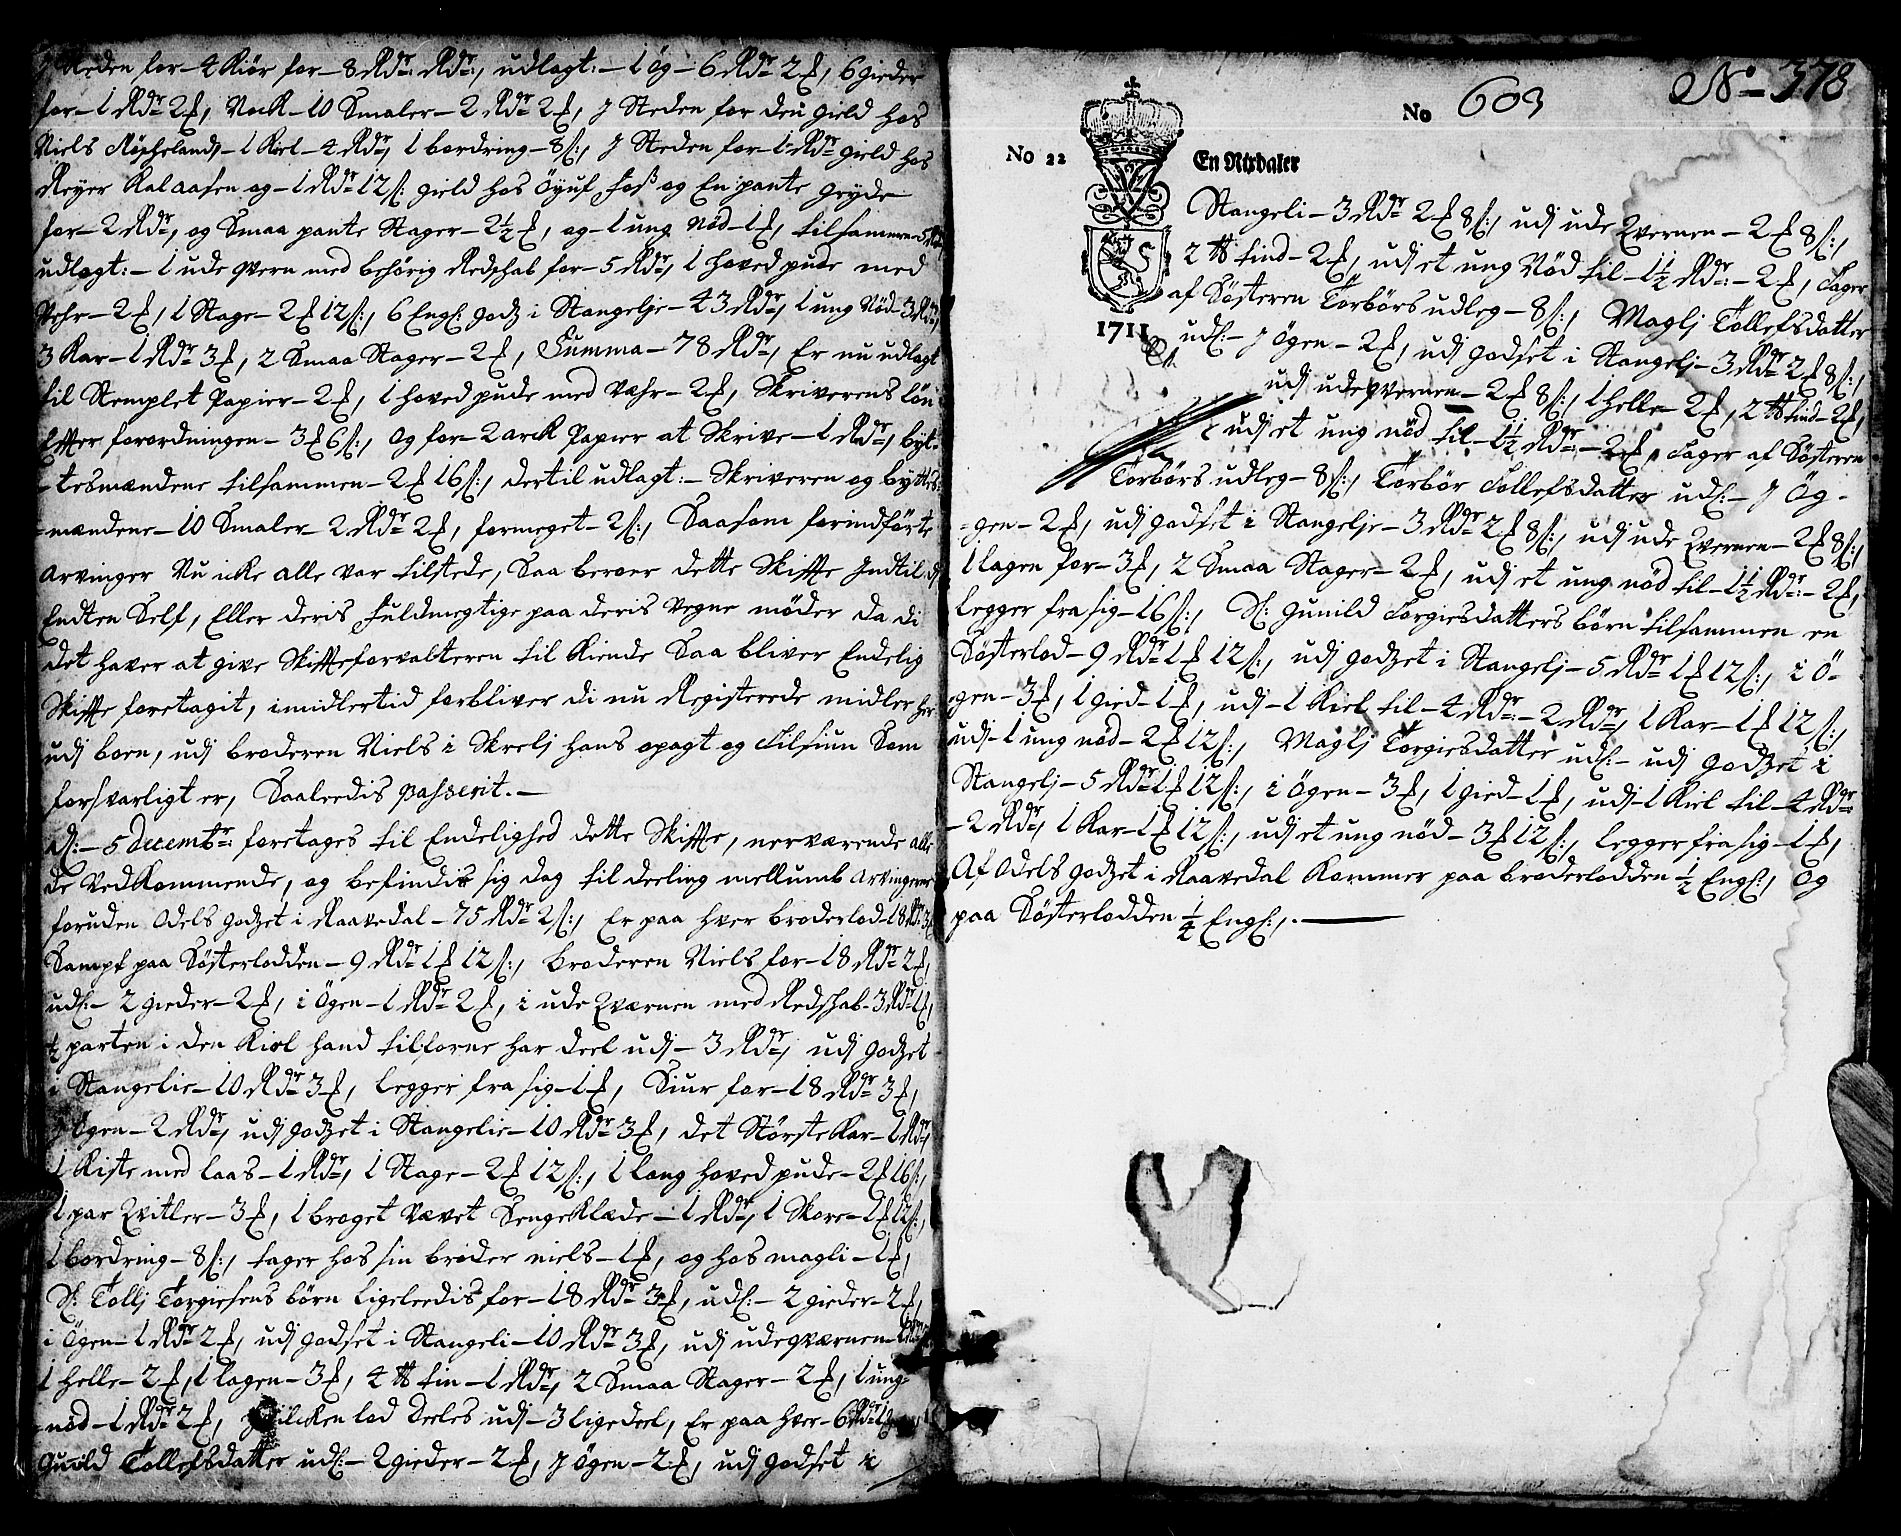 J Steden for – 4 Kiör for – 8 Rdr: Rdr:, udlagt: – 1 Ög – 6 Rdr 2 £, 6 gieder
for – 1 Rdr 2 £, Nock – 10 Smaler – 2 Rdr 2 £, J Steden for den gield hos
Niels Röscheland – 1 Kiel – 4 Rdr, 1 bordring – 8 ſ:, J Steden for – 1 Rdr gield hos
Reyer Kalaasen og – 1 Rdr 12 ſ: gield hos Öyuf Foss og En pante gryde
for – 2 Rdr, og Smaa pante Stager – 2½ £, og – 1 ung Nöd – 1 £, tilsammen – 5 Rdr
udlagt: – 1 ude qvern med behörig Redschab for – 5 Rdr, 1 hoved pude med
Vahr – 2 £, 1 Stage – 2 £ 12 ſ:, 6 Engſ: godz i Stangelje – 43 Rdr, 1 ung Nöd – 3 Rdr,
3 Kar – 1 Rdr 3 £, 2 Smaa Stager – 2 £, Summa – 78 Rdr, Er nu udlagt
til Stemplet Papier – 2 £, 1 hoved pude med Vahr – 2 £, Skriverens lön
Efter forordningen – 3 £ 6 ſ:, og for – 2 arck Papier at Skrive – 1 Rdr, byt-
-tesmændene tilsammen – 2 £ 16 ſ:, dertil udlagt: – Skriveren og byttes
=mændene – 10 Smaler – 2 Rdr 2 £, formeget – 2 ſ:, Saasom forindförte
Arvinger Nu icke alle var tilstede, Saa beroer dette Skiffte Indtil di
Endten Self, Eller deris Fuldmegtige paa deris Vegne möder da di
det haver at give Skiffteforvalteren til Kiende Saa bliver Endelig
Skiffte foretagit, imidlertid forbliver di nu Registerede midler her
udj boen, udj broderen Niels i Skrelj hans opagt og Tilsiun Som
forsvarligt er, Saaleedis passerit. –
Dſ: – 5 decembr: foretages til Endelighed dette Skiffte, nerværende alle
de Vedkommende, og befindis sig dag til deeling mellumb Arvingerne
foruden Odels godzet i Raavedal – 75 Rdr 2 ſ:, Er paa hver broderlod 18 Rdr 3 £
Sampt paa Södsterlodden – 9 Rdr 1 £ 12 ſ:, broderen Niels for – 18 Rdr 2 £,
udſ: – 2 gieder – 2 £, i Ögen – 1 Rdr 2 £, i ude Qværnen med Redschab – 3 Rdr 1 £,
½ parten i den Kiel hand tilforne har deel udj – 3 Rdr, udj godzet
i Stangelie – 10 Rdr 3 £, legger fra sig – 1 £, Siur for – 18 Rdr 3 £,
J Ögen – 2 Rdr, udj godzet i Stangelie – 10 Rdr 3 £, det Störste Kar – 1 Rdr,
1 Kiste med laas – 1 Rdr, 1 Stage – 2 £ 12 ſ:, 1 lang hoved pude – 2 £ 16 ſ:,
1 par Qvitler – 3 £, 1 broget Vævet Sengeklæde – 1 Rdr, 1 Skore – 1 £ 12 ſ:,
1 bordring – 8 ſ:, tager hos sin broder niels – 1 £, og hos magli – 1 £,
Sſ: Tollj Torgiesens börn ligeleedis for – 18 Rdr 3 £, udſ: – 2 gieder – 2 £,
i Ögen – 1 Rdr 2 £, udj godset i Stangeli – 10 Rdr 3 £, udj udeqværnen –
1 helle – 2 £, 1 lagen – 3 £, 4 ℔ tin – 1 Rdr, 2 Smaa Stager – 2 £, 1 ung-
nöd – 1 Rdr 2 £, hvilcken lod Deeles udj – 3 ligedeel, Er paa hver – 6 Rdr
Gunild Tollefsdatter udſ: – 2 gieder – 2 £, J Ögen – 2 £, udj godset i
No 603 No – 378
No 22 En Rixdaler
1711
Stangeli – 3 Rdr 2 £ 8 ſ:, udj ude Qvernen – 2 £ 8 ſ:,
2 ℔ tind – 2 £, udj et ung Nöd til – 1½ Rdr: – 2 £, tager
af Södsteren Torbörs udleg – 8 ſ:, Maglj Tollefsdatter
udſ: – J Ögen – 2 £, udj godset i Stangelj – 3 Rdr 2 £ 8 ſ:,
udj ude qvernen – 2 £ 8 ſ:, 1 helle – 2 £, 2 ℔ tind – 2 £,
udj et ung nöd til – 1½ Rdr: – 2 £, tager af Södsteren
Torbörs udleg – 8 ſ:, Torbör Tollefsdatter udſ: – J Ög-
=gen – 2 £, udj godset i Stangelje – 3 Rdr 2 £ 8 ſ:, udj ude Qvernen – 2 £ 8 ſ:,
1 lagen for – 3 £, 2 Smaa Stager – 2 £, udj et ung nöd til – 1½ Rdr: – 2 £,
legger fra sig – 16 ſ:, Sſ: gunild Torgiesdatters börn tilsammen en
Södsterlod – 9 Rdr 1 £ 12 ſ:, udj godzet i Stangelj – 5 Rdr 1 £ 12 ſ:, i Ö-
gen – 3 £, 1 gied – 1 £, udj – 1 Kiel til – 4 Rdr: – 2 Rdr, 1 Kar – 1 £ 12 ſ:,
udj – 1 ung nöd – 2 £ 12 ſ:, Maglj Torgiesdatter udſ: – udj godzet i
Stangelj – 5 Rdr 1 £ 12 ſ:, i Ögen – 3 £, 1 gied – 1 £, udj – 1 Kiel til – 4 Rdr:
– 2 Rdr, 1 Kar – 1 £ 12 ſ:, udj et ung nöd – 3 £ 12 ſ:, legger fra sig – 1 £,
Af Odels godzet i Raavedal Kommer paa broderlodden ½ Engſ:, Og
paa Södsterlodden ¼ Engſ:. –